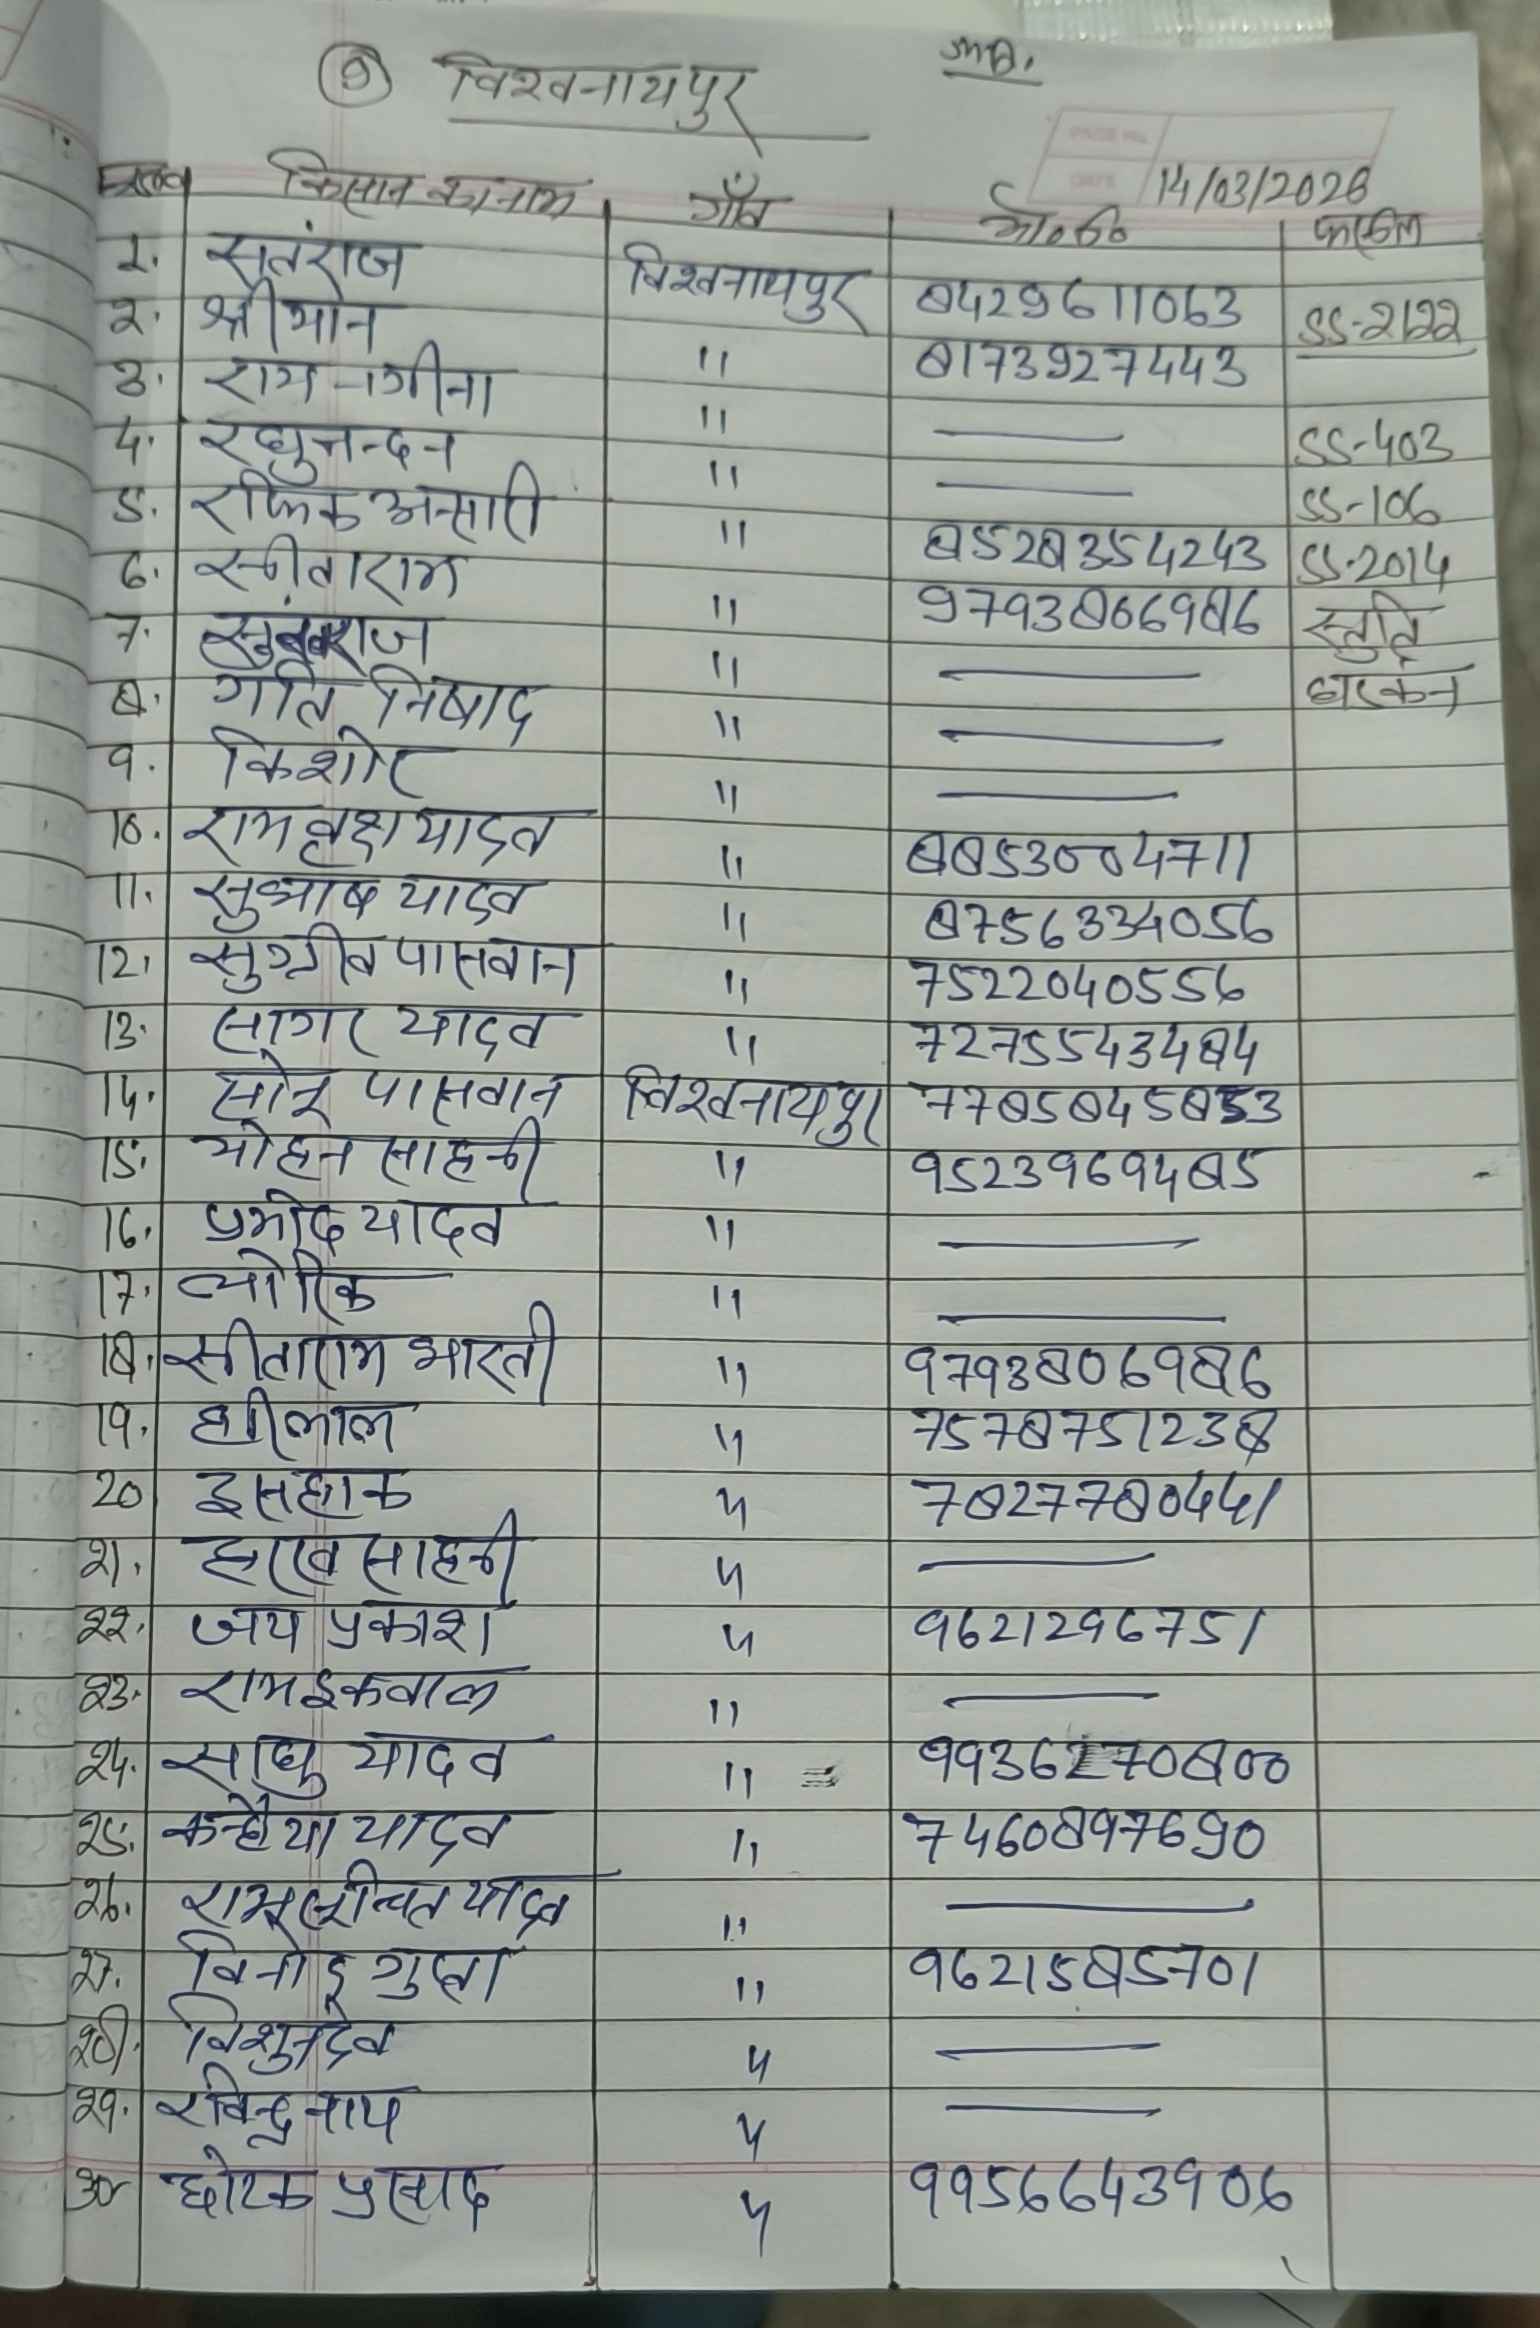 ① विश्वनाथपुर
14/03/2026
किसान का नाम गाँव मो०नं० फसल
1. सतंराज विश्वनाथपुर 8429611063 SS-2122
2. श्रीमान " 8173927443
3. राम नगीना " — SS-403
4. रघुनन्दन " — SS-106
5. रफिक अन्सारी " 8528354243 SS-2014
6. सीताराम " 9793806986 स्तुति
7. " —
8. गति निषाद " —
9. किशोर "  —
10. रामबृक्ष यादव " 8853004711
11. सुभाष यादव " 8756334056
12. सुग्रीव पासवान " 7522040556
13. सागर यादव " 7275543484
14. सोनू पासवान विश्वनाथपुर 7785845853
15. मोहन साहनी " 9523969485
16. प्रमोद यादव " —
17. " —
18. सीताराम भारती " 9793806986
19. हीलाल " 7578751238
20 इसहाक " 7827780441
21. साहनी " —
22. जय प्रकाश " 9621296751
23. रामइकबाल " —
24. साधु यादव " 9936270800
25. कन्हैया यादव " 7460897690
26. यादव " —
27. विनोद गुप्ता " 9621585701
28. विशुनदेव " —
29. रविन्द्र नाथ " —
30 छोटक प्रसाद " 9956643906